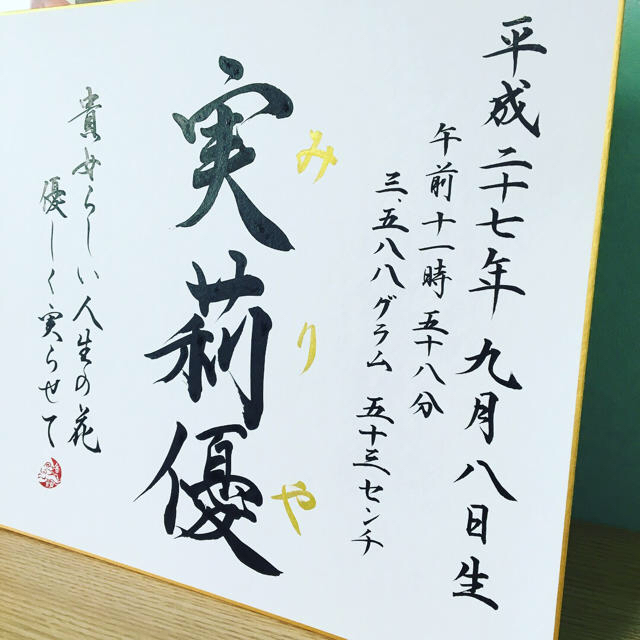 平成二十七年九月八日生
午前十一時五十八分
三、五八八グラム 五十三センチ
実莉優
みりや
貴女らしい人生の花
優しく実らせて